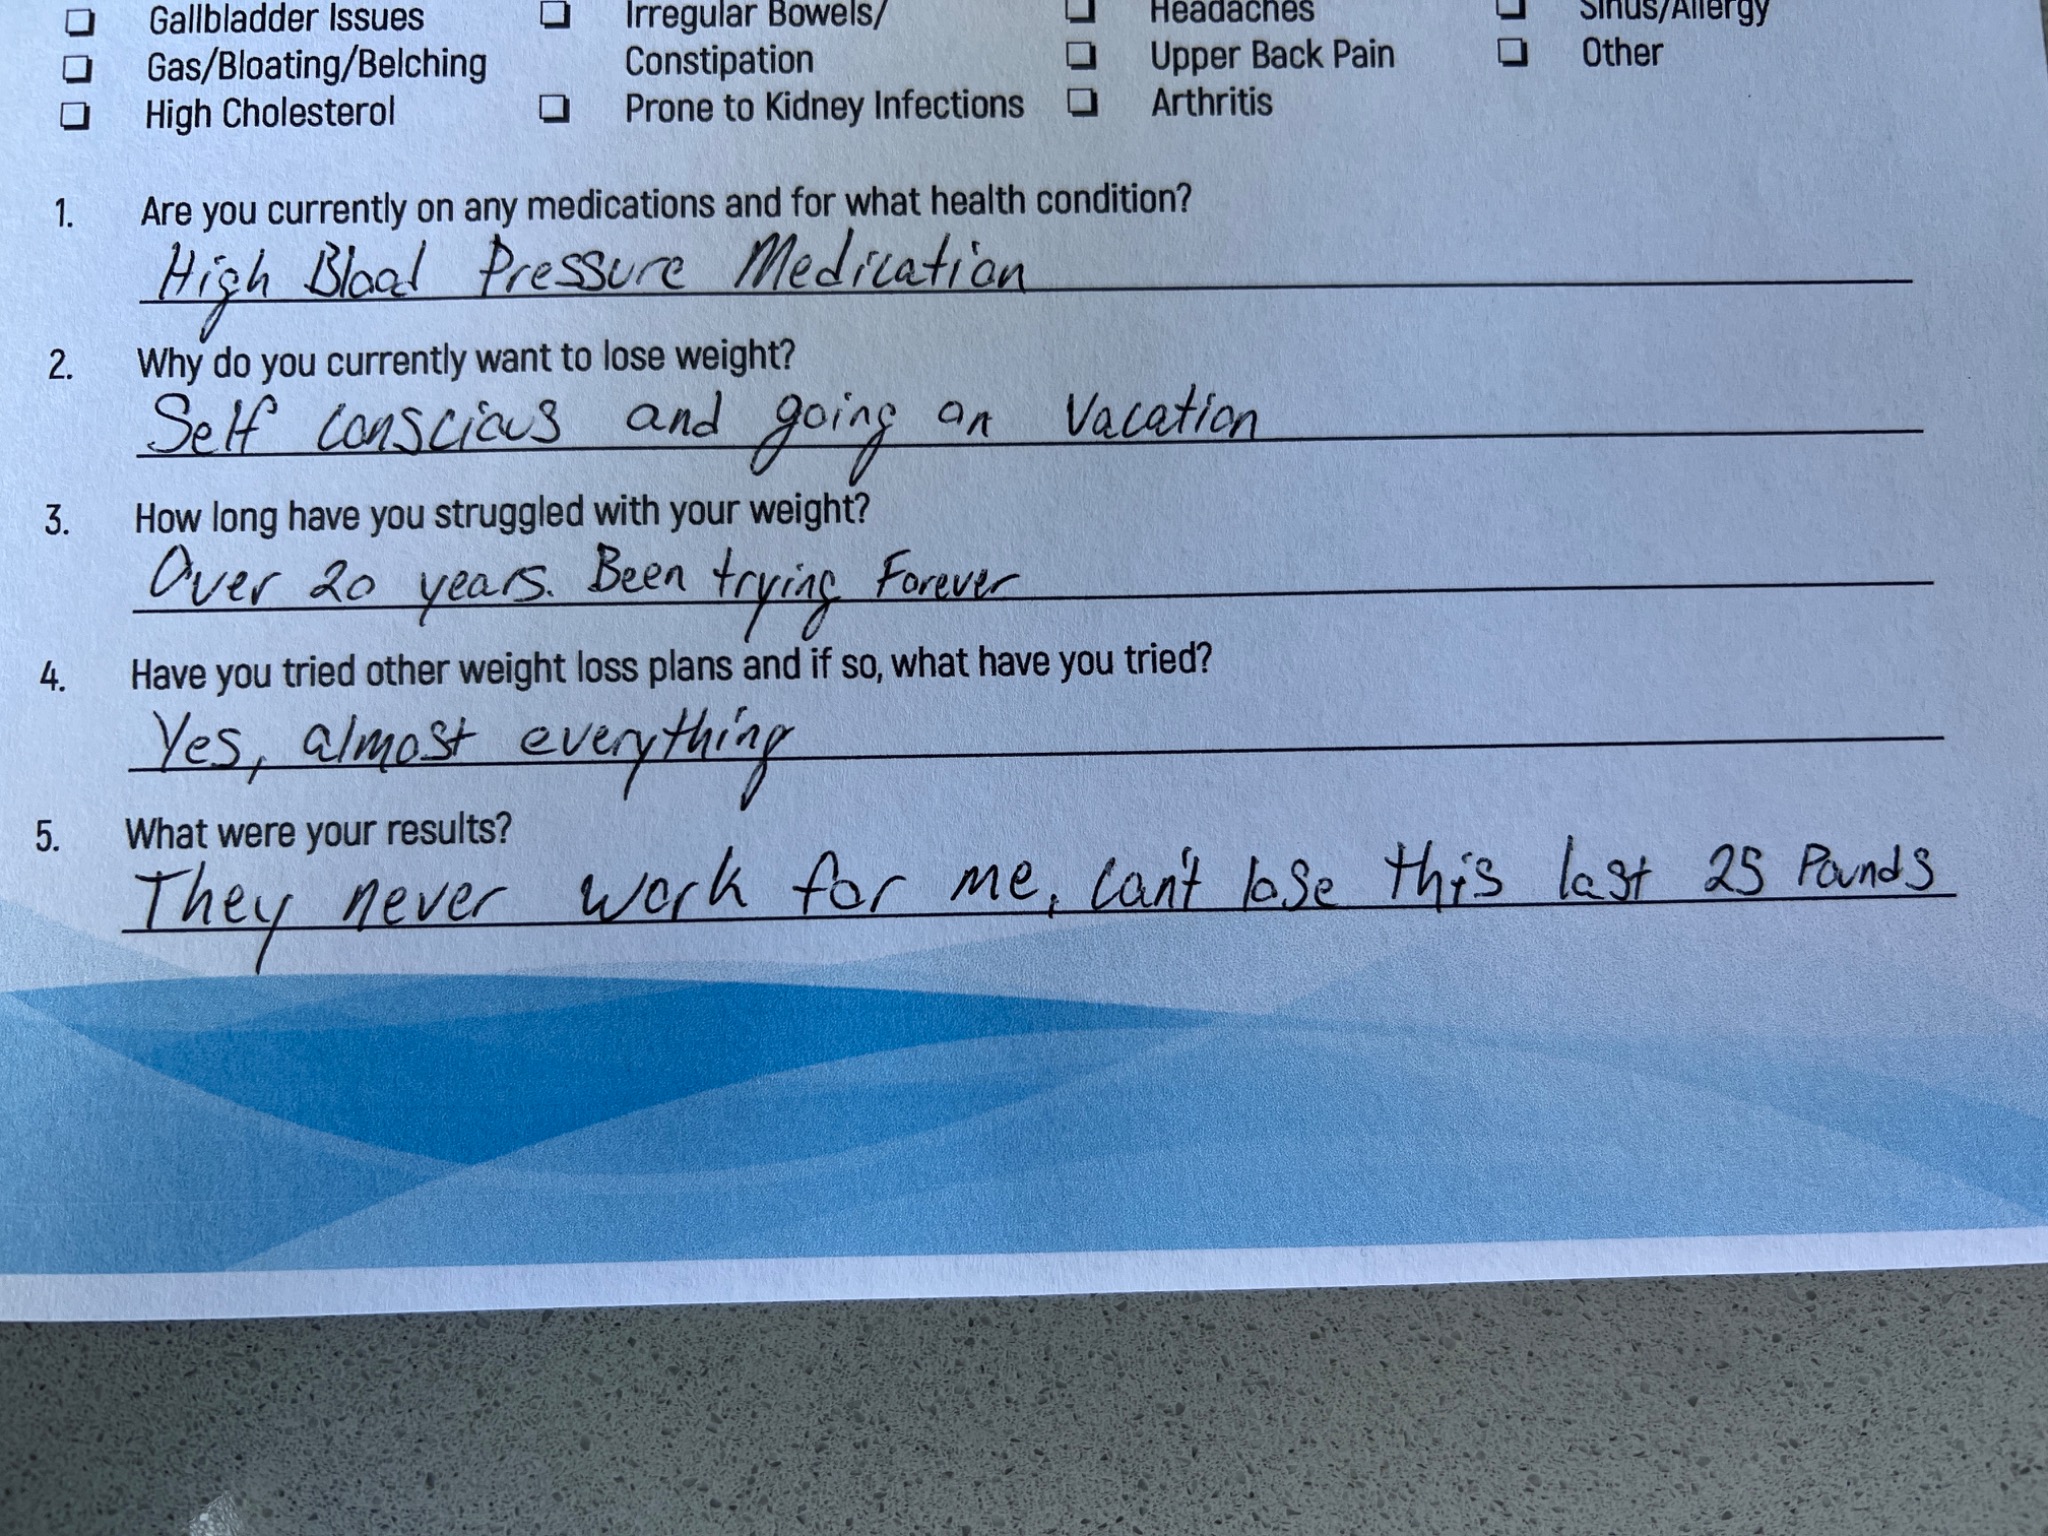 Gallbladder Issues Irregular Bowels/ Headaches Sinus/Allergy
Gas/Bloating/Belching Constipation Upper Back Pain Other
High Cholesterol Prone to Kidney Infections Arthritis
1. Are you currently on any medications and for what health condition?
High Blood Pressure Medication
2. Why do you currently want to lose weight?
Self conscious and going on Vacation
3. How long have you struggled with your weight?
Over 20 years. Been trying Forever
4. Have you tried other weight loss plans and if so, what have you tried?
Yes, almost everything
5. What were your results?
They never work for me, can't lose this last 25 Pounds